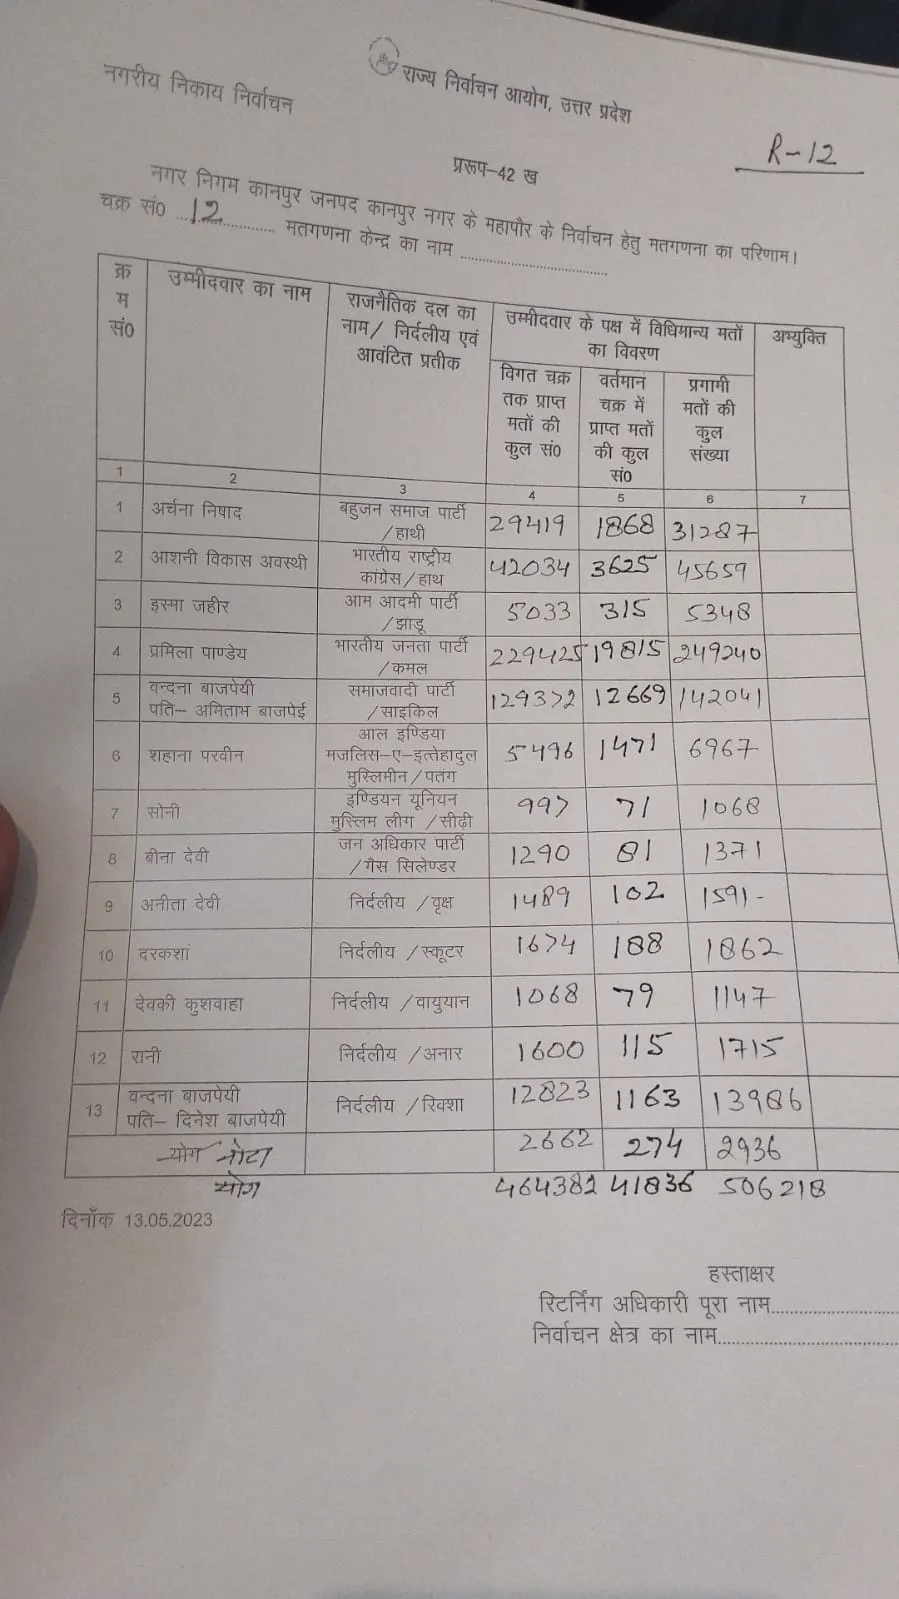 नगरीय निकाय निर्वाचन
राज्य निर्वाचन आयोग, उत्तर प्रदेश
R-12
प्ररूप-42 ख
नगर निगम कानपुर जनपद कानपुर नगर के महापौर के निर्वाचन हेतु मतगणना का परिणाम।
चक्र सं० ...12................ मतगणना केन्द्र का नाम ......................................
क्र म सं० उम्मीदवार का नाम राजनैतिक दल का नाम/ निर्दलीय एवं आवंटित प्रतीक उम्मीदवार के पक्ष में विधिमान्य मतों का विवरण अभ्युक्ति
विगत चक्र तक प्राप्त मतों की कुल सं० वर्तमान चक्र में प्राप्त मतों की कुल सं० प्रगामी मतों की कुल संख्या
1 2 3 4 5 6 7
1 अर्चना निषाद बहुजन समाज पार्टी /हाथी 29419 1868 31287
2 आशनी विकास अवस्थी भारतीय राष्ट्रीय कांग्रेस/हाथ 42034 3625 45659
3 इस्मा जहीर आम आदमी पार्टी /झाडू 5033 315 5348
4 प्रमिला पाण्डेय भारतीय जनता पार्टी /कमल 229425 19815 249240
5 वन्दना बाजपेयी पति- अमिताभ बाजपेई समाजवादी पार्टी /साइकिल 129372 12669 142041
6 शहाना परवीन आल इण्डिया मजलिस-ए-इत्तेहादुल मुस्लिमीन/पतंग 5496 1471 6967
7 सोनी इण्डियन यूनियन मुस्लिम लीग /सीढ़ी 997 71 1068
8 बीना देवी जन अधिकार पार्टी /गैस सिलेण्डर 1290 81 1371
9 अनीता देवी निर्दलीय /वृक्ष 1489 102 1591-
10 दरकशां निर्दलीय /स्कूटर 1674 188 1862
11 देवकी कुशवाहा निर्दलीय /वायुयान 1068 79 1147
12 रानी निर्दलीय /अनार 1600 115 1715
13 वन्दना बाजपेयी पति- दिनेश बाजपेयी निर्दलीय /रिक्शा 12823 1163 13986
योग नोटा 2662 274 2936
योग 464382 41836 506218
दिनाँक 13.05.2023
हस्ताक्षर
रिटर्निंग अधिकारी पूरा नाम........................
निर्वाचन क्षेत्र का नाम..................................